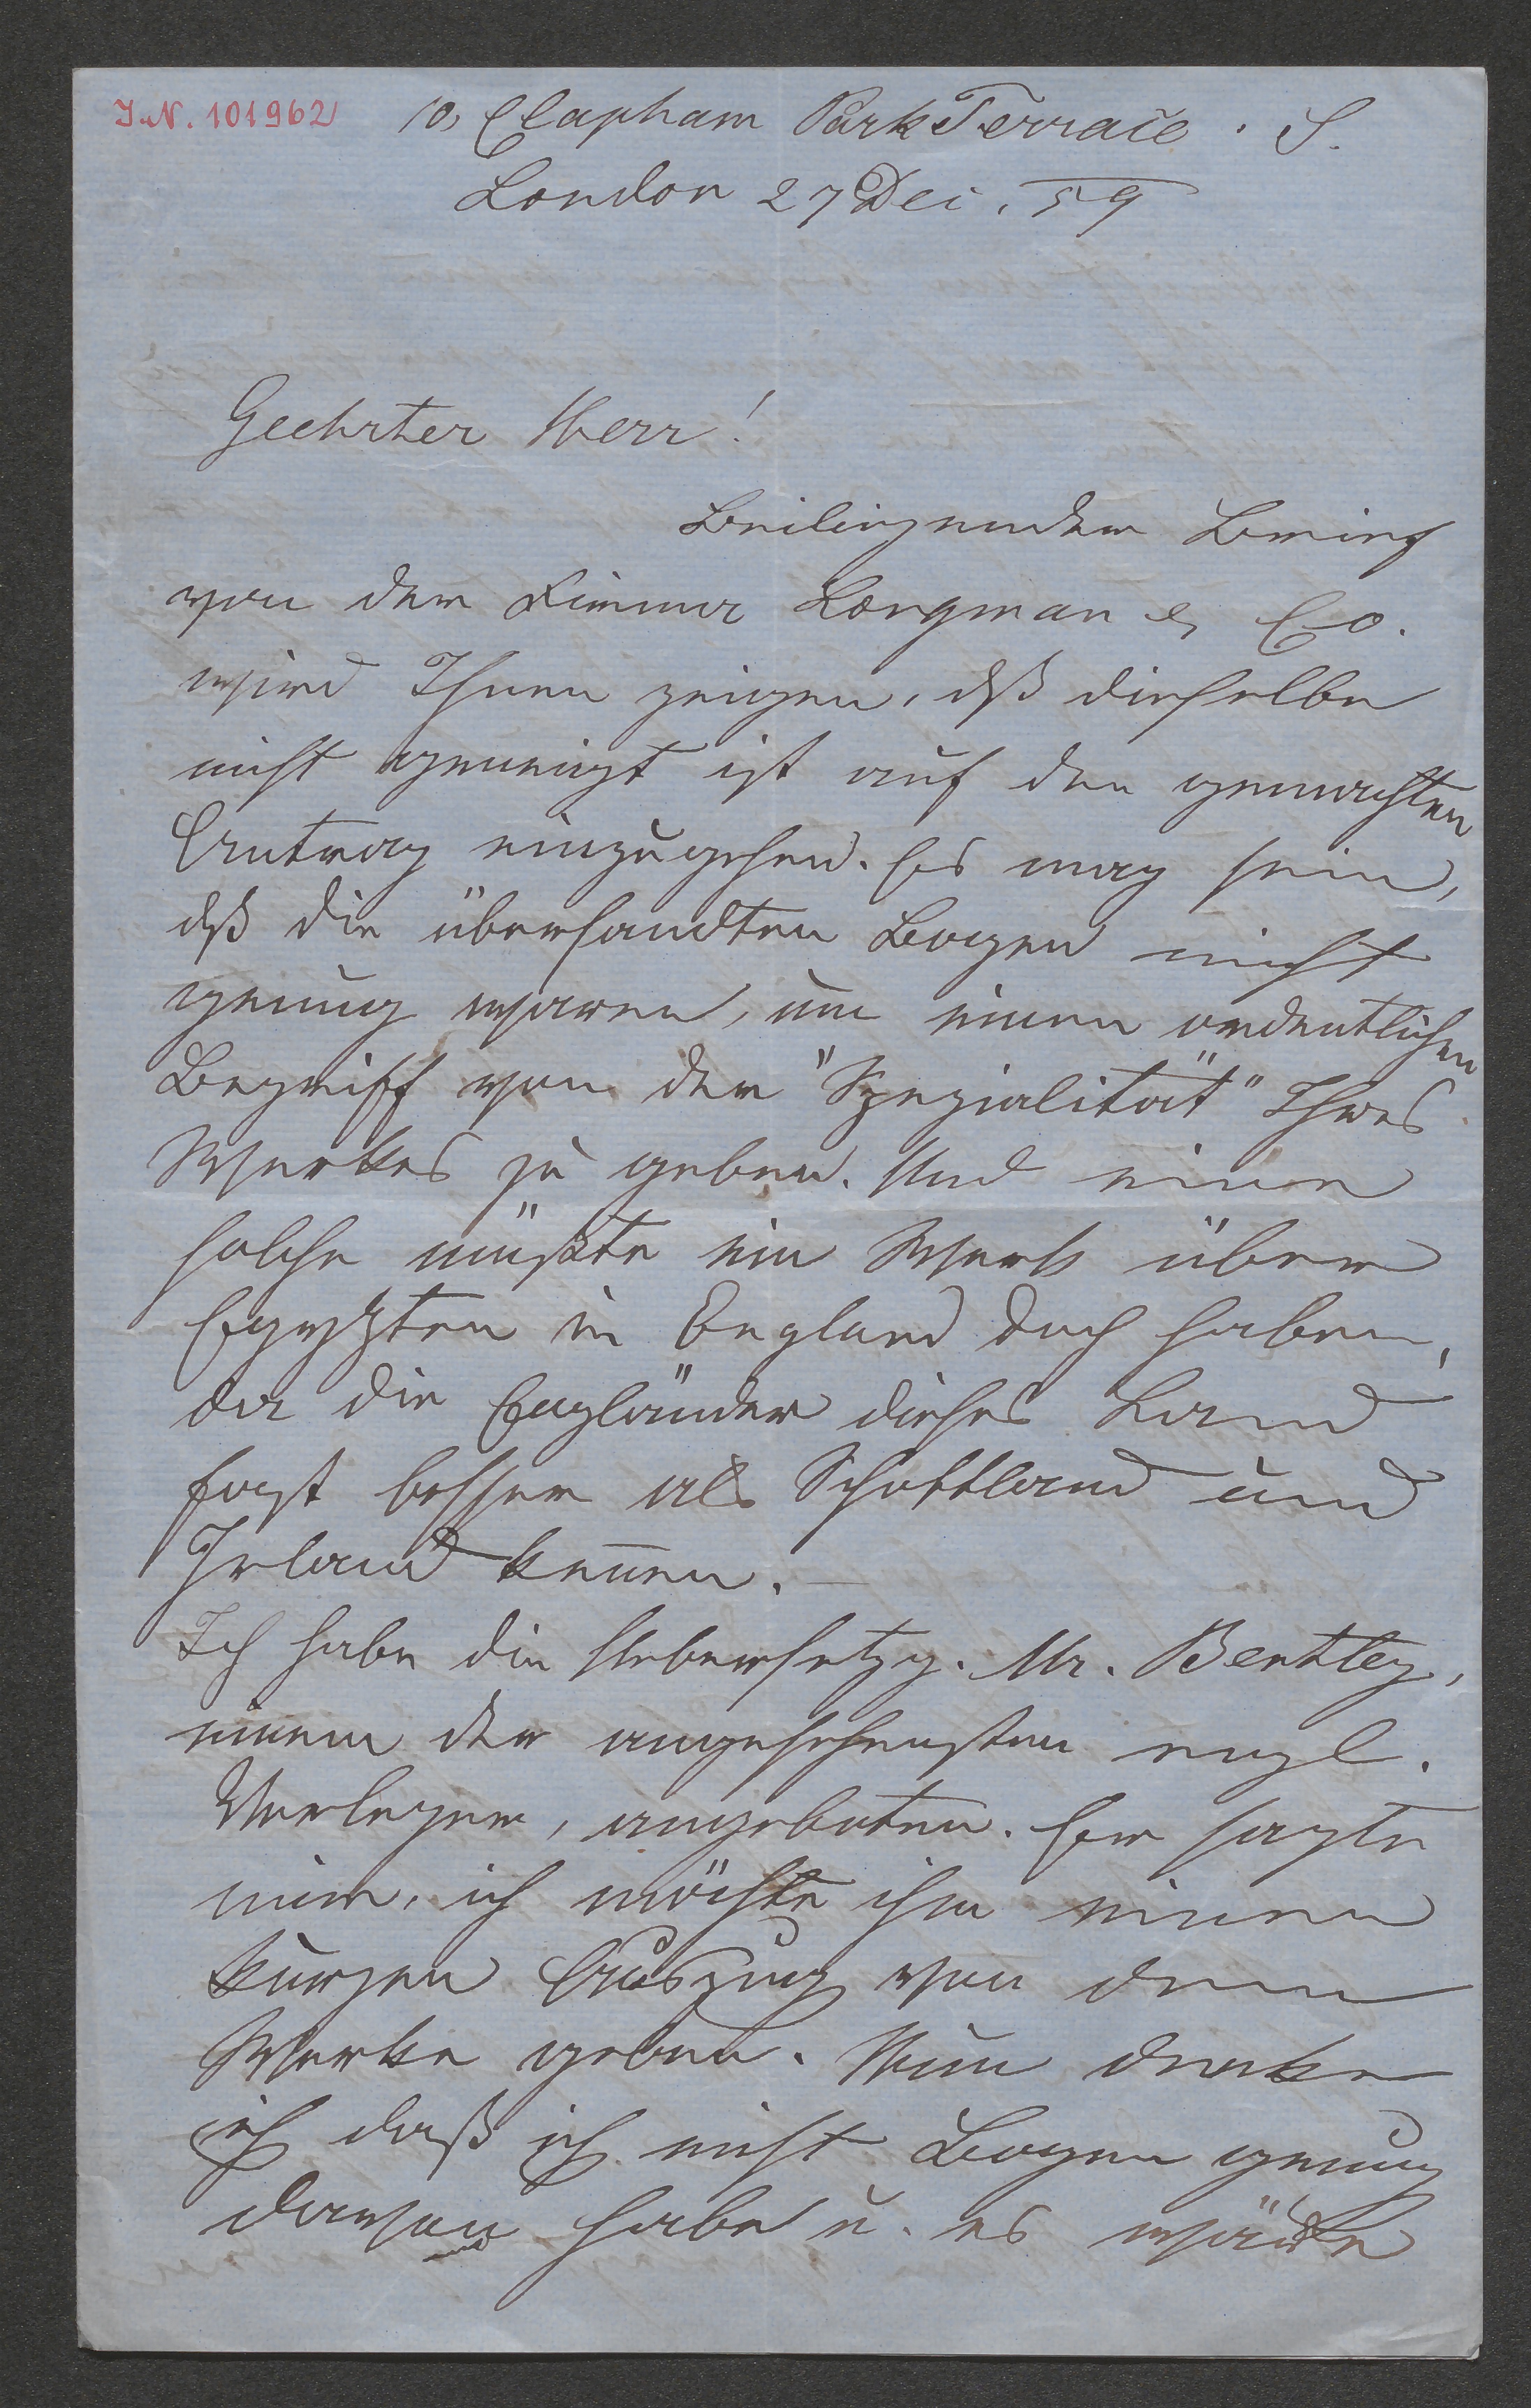 I.N. 101962
10, Clapham Park Terrace. S.
London 27 Dec. 59
Geehrter Herr!
Beiliegender Brief
von der Firma Longman & Co.
wird Ihnen zeigen, dß dieselbe
nicht geneigt ist auf den gemachten
Antrag einzugehen. Es mag sein,
dß die übersandten Bogen nicht
genug waren, um einen ordentlichen
Begriff von der "Spezialität" Ihres
Werkes zu geben. Und eine
solche müßte ein Werk über
Egypten in England doch haben,
da die Engländer dieses Land
fast besser als Schottland und
Irland kennen. —
Ich habe die Uebersetzg. Mr. Bentley,
einem der angesehensten engl.
Verleger, angeboten. Er sagte
mir, ich möchte ihm einen
kurzen Auszug von dem
Werke geben. Nun denke
ich daß ich nicht Bogen genug
davon habe u. es wäre